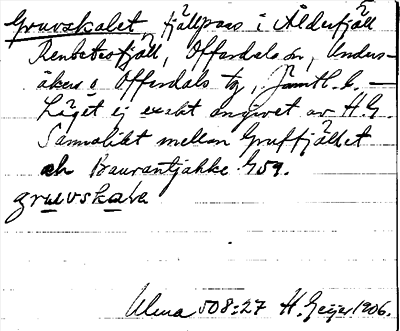 Gruvskalet fjällpass i Ålderfjäll
Renbetesfjäll, Offerdals sn, Unders-
åkers o Offerdals tg, Jämtl. l. —
Läget ej exakt angivet av H.G.
Sannolikt mellan Gruffjället
och Baurantjahke. G59.
gruvskalɛ
Ulma 508:27 H. Geijer 1906.